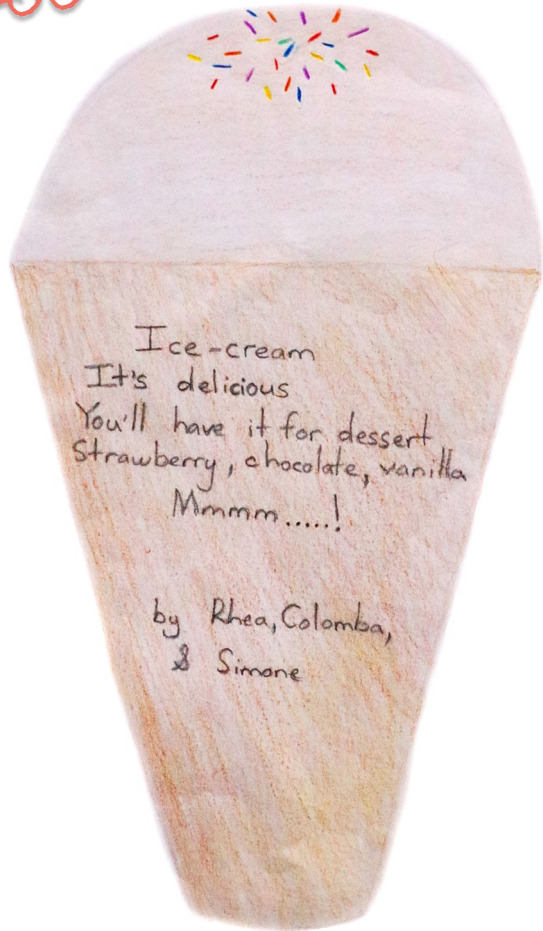 Ice-cream
It's delicious
You'll have it for dessert
Strawberry, chocolate, vanilla
Mmmm.....!
by Rhea, Colomba,
& Simone